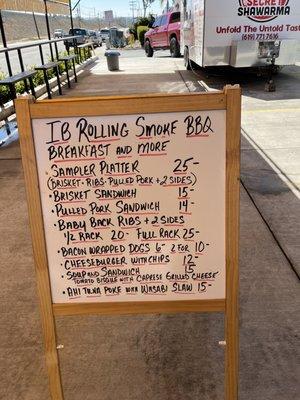 SECRET
SHAWARMA
Unfold The Untold Taste
619/771.7616
IB ROLLING SMOKE BBQ
BREAKFAST AND MORE
• SAMPLER PLATTER 25-
(BRISKET · RIBS · PULLED PORK + 2 SIDES)
• BRISKET SANDWICH 15-
• PULLED PORK SANDWICH 14-
• BABY BACK RIBS + 2 SIDES
1/2 RACK 20- FULL RACK 25-
• BACON WRAPPED DOGS 6- 2 FOR 10-
• CHEESEBURGER WITH CHIPS 12-
• SOUP AND SANDWICH 15
TOMATO BISQUE WITH CAPRESE GRILLED CHEESE
• AHI TUNA POKE WITH WASABI SLAW 15-